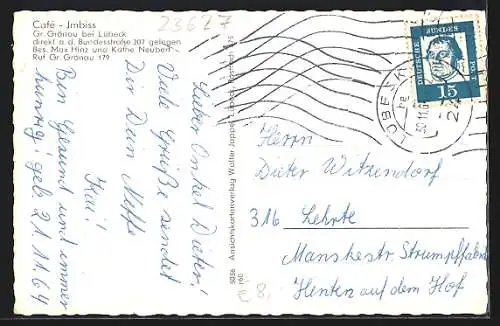 Café - Jmbiss
Gr. Grönau bei Lübeck
direkt a. d. Bundesstraße 207 gelegen
Bes. Max Hinz und Käthe Neubert
Ruf Gr. Grönau 179
23627
Lieber Onkel Dieter!
Viele Grüße sendet
Dir Dein Neffe
Kai!
Bin Gesund und immer
hunrig! geb 21.11.64
5056 Ansichtskartenverlag Walter Joppien, Lübeck
€ 8,
DEUTSCHE
BUNDES
POST
15
LÜBECK
Herrn
Dieter Witzendorf
316 Lehrte
Manskestr Strumpffabrik
Henten auf dem Hof